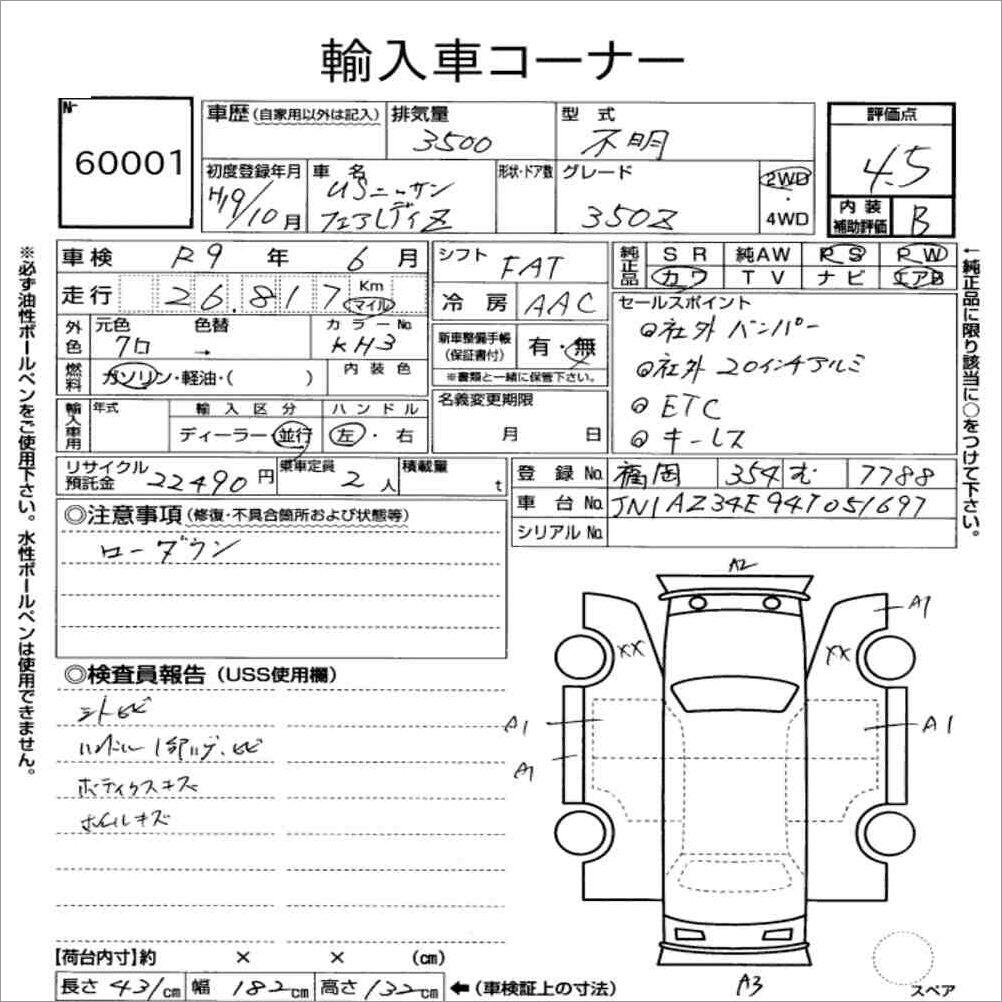 輸入車コーナー
№
60001
車歴 (自家用以外は記入)
排気量
3500
型式
不明
評価点
4.5
初度登録年月
H19/10月
車名
USニッサン
フェアレディZ
形状・ドア数
グレード
350Z
2WD
・
4WD
内装
補助評価
B
車検 R9 年 6 月
シフト
FAT
純正品
SR 純AW PS PW
カワ TV ナビ エアB
走行 26.817 Km
マイル
冷房
AAC
セールスポイント
◎社外 バンパー
◎社外 20インチアルミ
◎ETC
◎キーレス
外色
元色 色替
クロ →
カラーNo.
KH3
新車整備手帳
(保証書付)
有・無
※書類と一緒に保管下さい。
燃料
ガソリン・軽油・( )
内装色
名義変更期限
月 日
輸入車用
年式
輸入区分
ディーラー・並行
ハンドル
左・右
リサイクル
預託金
22490円
乗車定員
2人
積載量
t
登録No. 福岡 354 む 7788
車台No. JN1AZ34E94T051697
シリアルNo.
◎注意事項 (修復・不具合箇所および状態等)
ローダウン
◎検査員報告 (USS使用欄)
シトヒビ
ハンドル 1部ハゲ、ヒビ
ボディクスキズ
ホイルキズ
A2
A1
XX
XX
A1
A1
A1
A3
スペア
【荷台内寸】約 × × (cm)
長さ 431cm 幅 182cm 高さ 132cm ←(車検証上の寸法)
※必ず油性ボールペンをご使用下さい。水性ボールペンは使用できません。
←純正品に限り該当に○をつけて下さい。